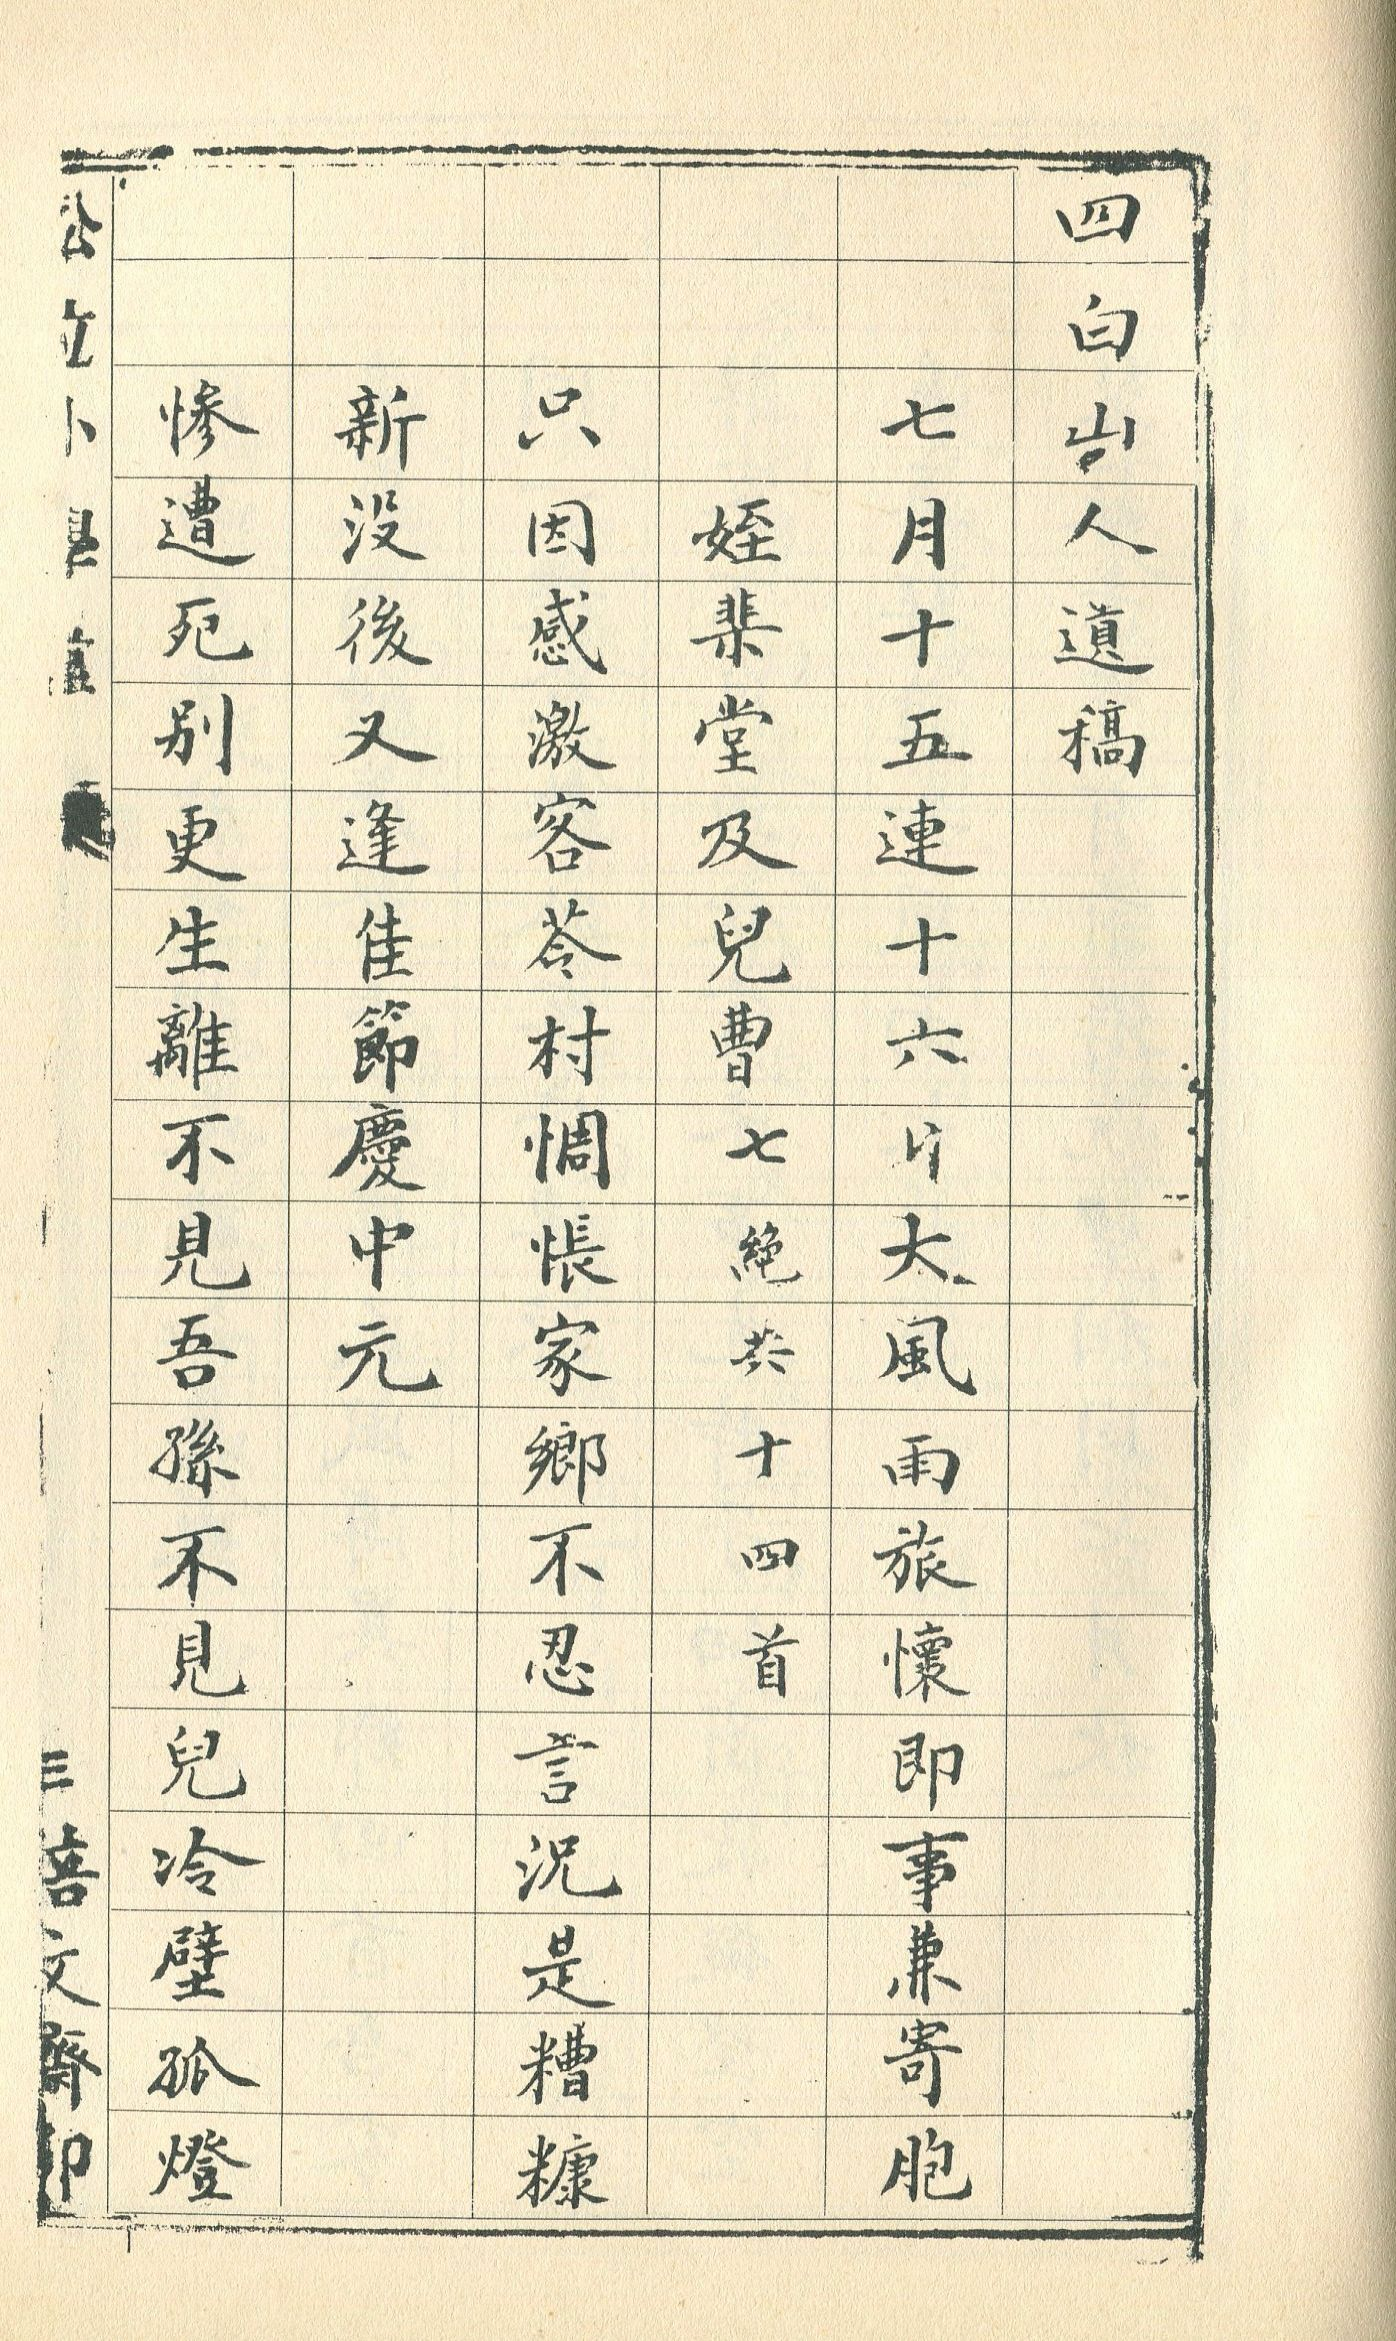 四白山人遺稿
七月十五連十六日大風雨旅懷即事兼寄胞
姪棐堂及兒曹七絕共十四首
只因感激客苓村惆悵家鄉不忍言況是糟糠
新沒後又逢佳節慶中元
慘遭死別更生離不見吾孫不見兒冷壁孤燈
文齋印